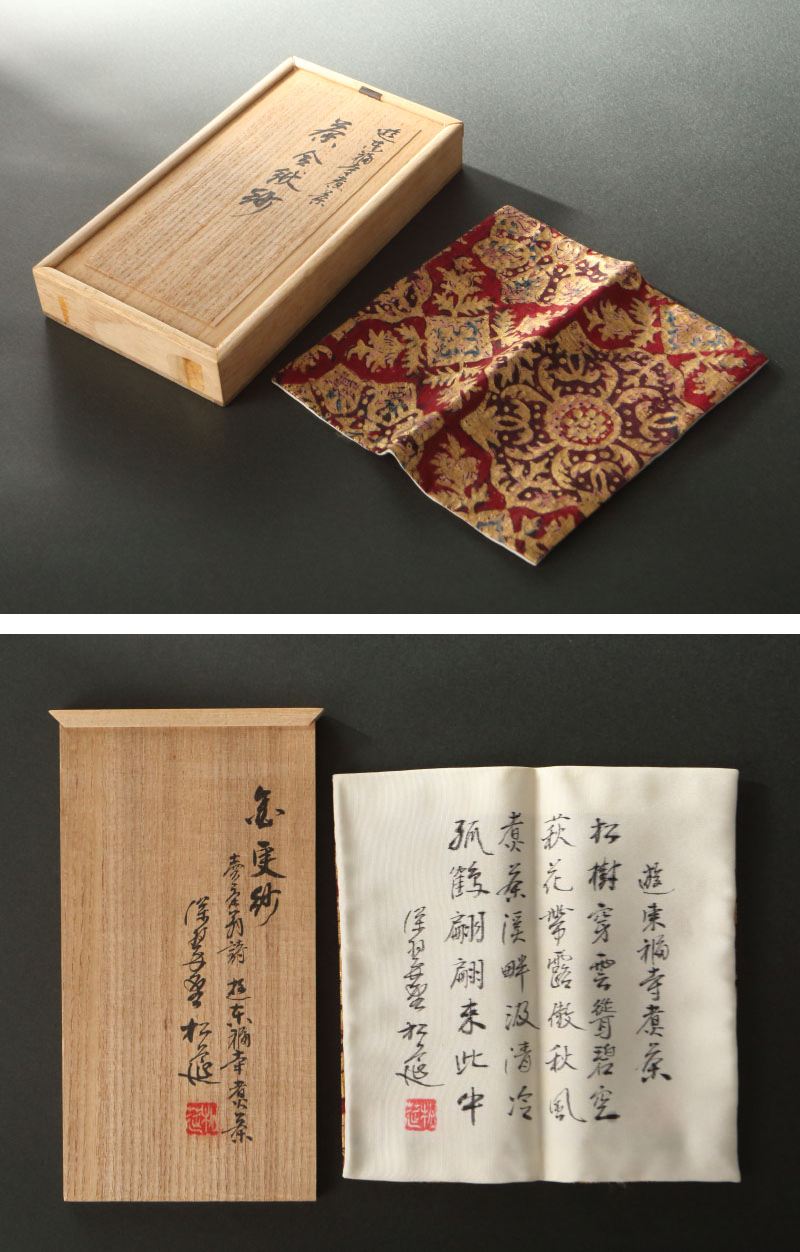 遊東福寺煮茶
茶合袱紗
金更紗
売茶翁詩 遊東福寺煮茶
松莚
遊東福寺煮茶
松樹穿雲聳碧空
萩花帶露傲秋風
煮茶溪畔汲清冷
孤鶴翩翩來此中
松莚